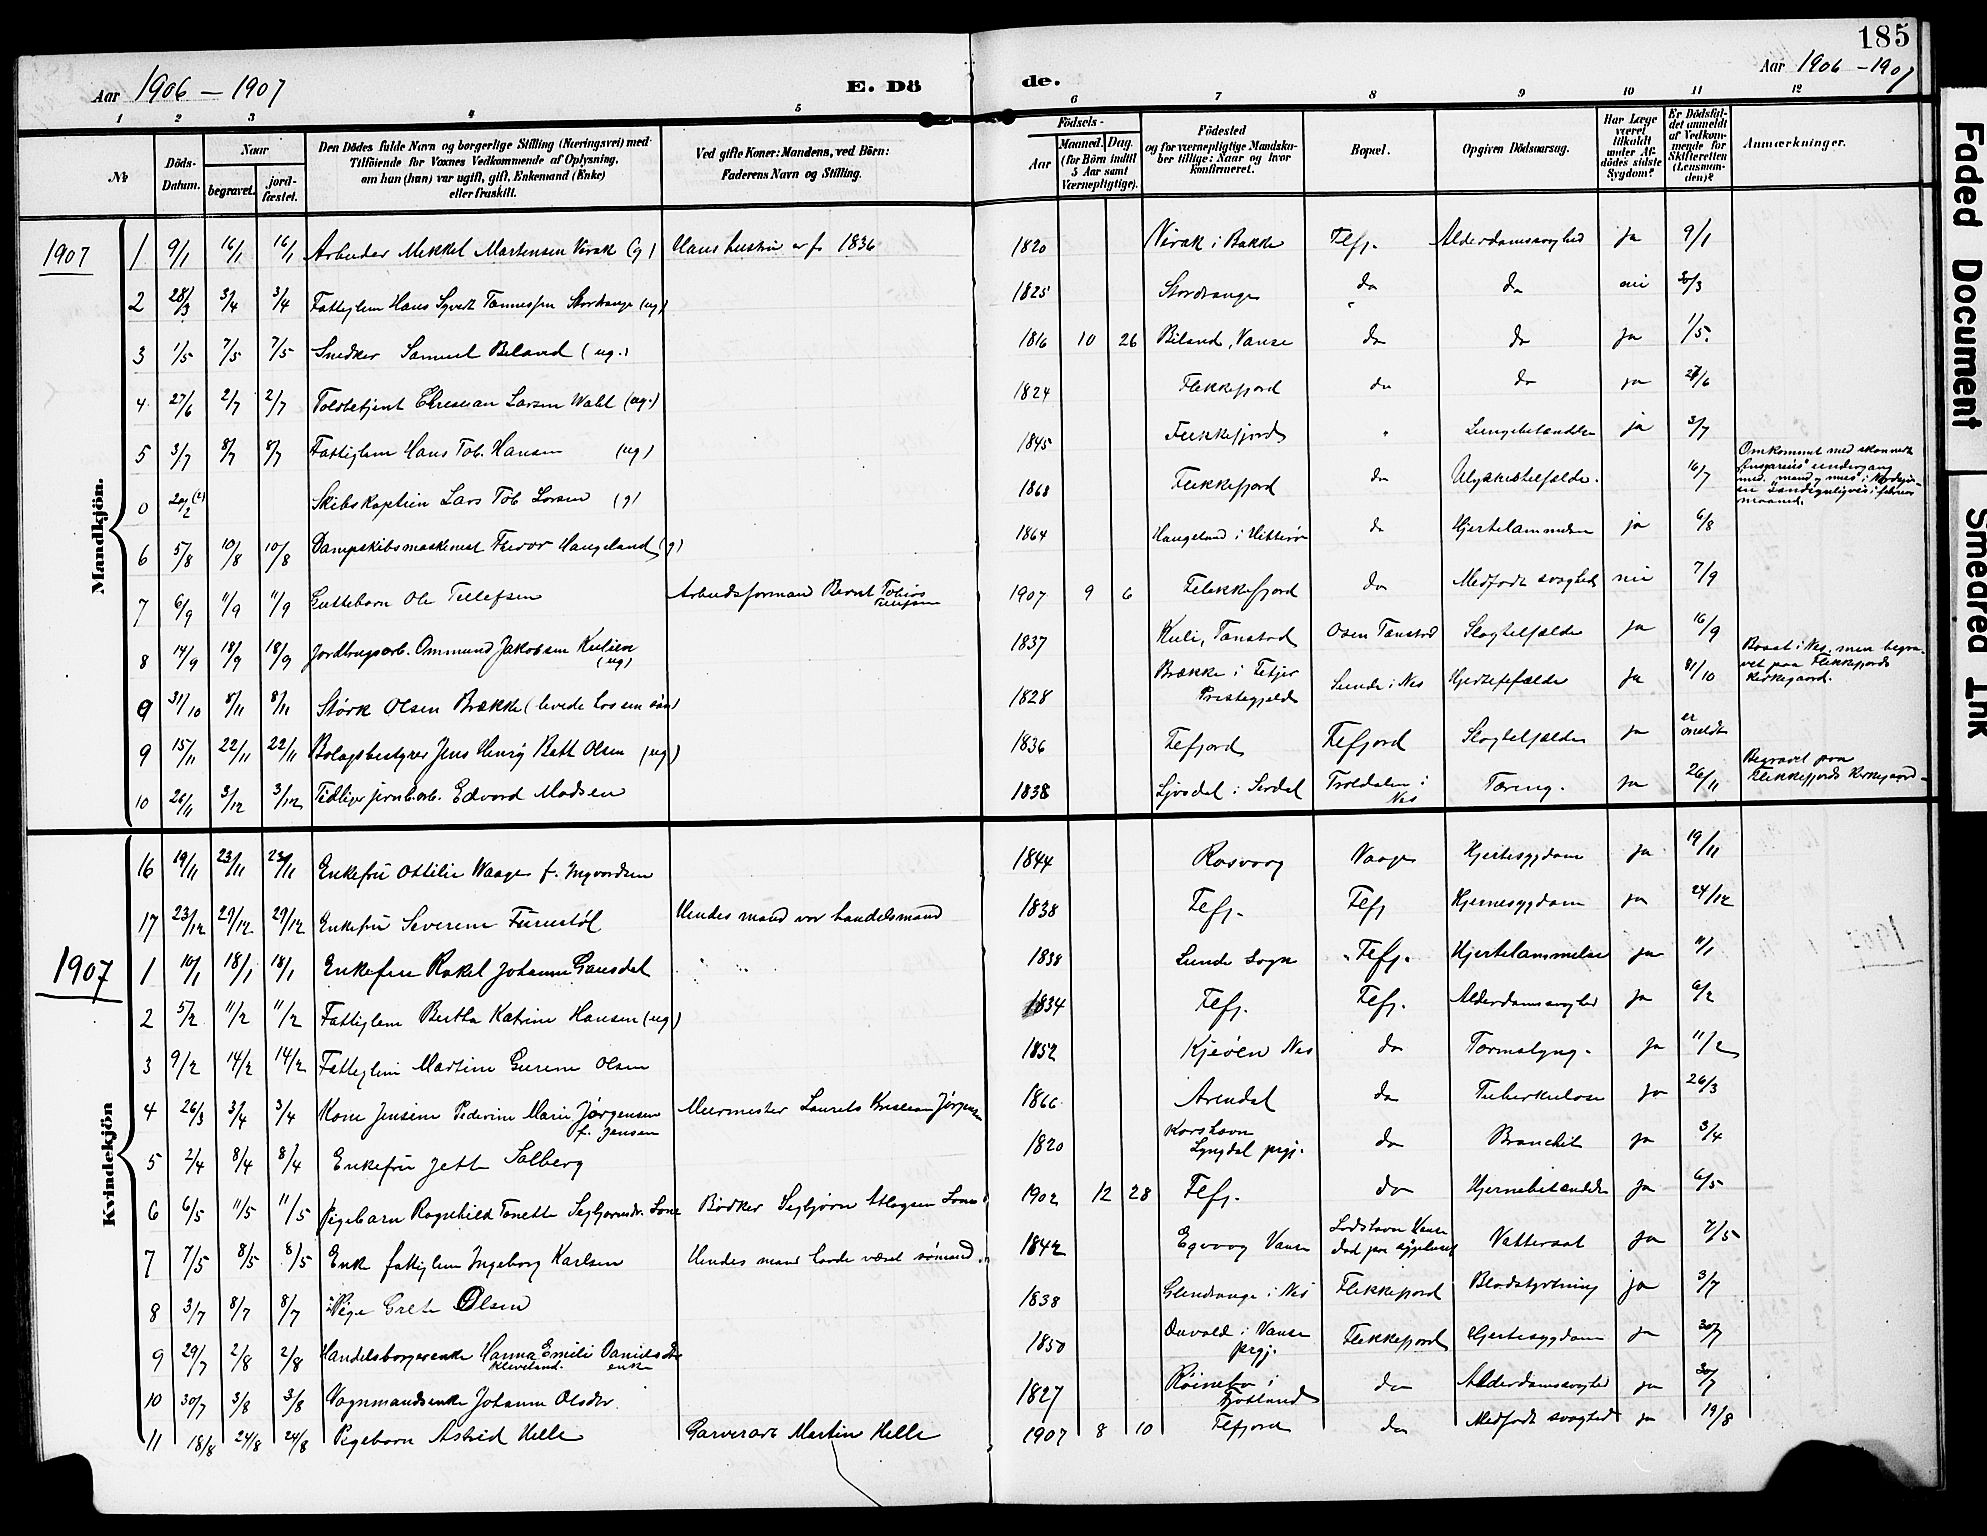 185
Aar 1906 – 1907 E. Dö de. Aar 1906 – 1907
1 2 3 4 5 6 7 8 9 10 11 12
No
Döds-Datum.
Naar
begravet.
jord-fæstet.
Den Dödes fulde Navn og borgerlige Stilling (Næringsvei) med
Tilföiende for Voxnes Vedkommende af Oplysning,
om han (hun) var ugift, gift, Enkemand (Enke)
eller fraskilt.
Ved gifte Koner: Mandens, ved Börn:
Faderens Navn og Stilling.
Födsels-
Aar
Maaned. Dag.
(for Börn indtil
5 Aar samt
Værnepligtige).
Födested
og for værnepligtige Mandska-
ber tillige: Naar og hvor
konfirmeret.
Bopæl.
Opgiven Dödsaarsag.
Har Læge
været
tilkaldt
under Af-
dödes sidste
Sygdom?
Er Dödsfal-
det anmeldt
af Vedkom-
mende for
Skifteretten
(Lensman-
den)?
Anmærkninger.
Mandkjön.
1907 1 9/1 16/1 16/1 Arbeider Mekkel Martensen Virak (g) Hans hustru er f. 1836 1820 Virak i Bakke Flefj. Alderdomssvaghed ja 9/1
2 28/3 3/4 3/4 Fattiglem Hans Syvert Tønnessen Stordrange (ug) 1825 Stordrange do do nei 30/3
3 1/5 7/5 7/5 Snedker Samuel Biland (ug.) 1816 10 26 Biland, Vanse do do ja 1/5.
4. 27/6 2/7 2/7 Toldbetjent Christian Larsen Wahl (ug.) 1824 Flekkefjord do do ja 27/6
5 3/7 8/7 8/7 Fattiglem Hans Tob. Hansen (ug) 1845 Flekkefjord " Lungebetændelse ja 3/7
0 20/2 (?) Skibskaptein Lars Tob Larsen (g) 1868 Flekkefjord do Ulykkestilfælde. 16/7 Omkommet med skonnert
undergang
med "mand og mus" i Nordsjø-
en sandsynligvis i februar
maaned.
6 5/8 10/8 10/8 Dampskibsmaskinist Haugeland (g) 1864 Haugeland i Hitterø do Hjertelammelse ja 6/8
7 6/9 11/9 11/9 Guttebarn Ole Tellefsen Arbeidsformand Bernt Tobias
Tellefsen 1907 9 6 Flekkefjord do Medfødt svaghed nei 7/9
8 14/9 18/9 18/9 Jordbrugsarb. Ommund Jakobsen Kulien
(ug) 1837 Kuli, Tonstad Osen Tonstad Slagtilfælde ja 16/9
9 31/10 8/11 8/11 Størk Olsen Brække (levede hos sin søn) 1828 Brække i Fitjar
Prestegjeld Sunde i Nes Hjertetilfælde ja 31/10 Bosat i Nes, men begra-
vet paa Flekkefjords
kirkegaard.
9 15/11 22/11 22/11 Bolagsbestyrer Jens Henry Bett Olsen (ug) 1836 Flefjord Flefjord Slagtilfælde ja er
meldt
10 26/11 3/12 3/12 Tidliger jernb.arb. Edvard Madsen 1838 Ljosdal i Sirdal Troldalen i
Nes Tæring. ja 26/11 Begravet paa
Flekkefjords Kirkegaard.
Kvindekjön
16 19/11 23/11 23/11 Enkefru Ottilie Waage f. Ingvardsen 1844 Rasvaag Vaage Hjertesygdom ja 19/11
17 23/12 29/12 29/12 Enkefru Severine Furustøl Hendes mand var handelsmand 1838 Flefj. Flefj Hjernesygdom ja 24/12
1907 1 10/1 18/1 18/1 Enkefru Rakel Johanne Gausdal " " 1838 Lunde Sogn Flefj. Hjertelammelse ja 11/1
2 5/2 11/2 11/2 Fattiglem Bertha Katrine Hansen (ug) 1834 Flefj. Flefj. Alderdomssvaghed ja 6/2
3 9/2 14/2 14/2 Fattiglem Martine Gurine Olsen 1852 Kjeøen Nes do Tarmslyng. ja 11/2
4 26/3 3/4 3/4 Kone Jensine Pederine Marie Jørgensen
f. Jensen Murmester Laurits Kristian Jørgensen 1866 Arendal do Tuberkulose ja 26/3
5 2/4 8/4 8/4 Enkefru Jette Salberg 1820 Korshavn
Lyngdal prgj. do Bronchit ja 3/4
6 6/5 11/5 11/5 Pigebarn Ragnhild Tonette Segbjørnsdr. Lone Bødker Segbjørn Atlagsen Lone 1902 12 28 Flefj. do Hjernebetændelse ja 6/5
7 7/5 8/5 8/5 Enk fattiglem Ingeborg Karlsen Hendes mand havde været sømand. 1842 Egvaag Vanse Lodshavn Vanse
død paa sygehuset Vattersot ja 7/5
8 3/7 8/7 8/7 Pige Grete Olsen 1838 Glendrange i Nes Flekkefjord Blodstyrtning ja 3/7
9 29/7 2/8 2/8 Handelsborgerenke Hanna Emilie Danielsdtr.
Kleveland. enke 1850 i Vanse
prgj. Flekkefjord Hjertesygdom ja 30/7
10 30/7 3/8 3/8 Vognmandsenke Johanne Olsdtr. 1827 Røinebø i
Fjotland do Alderdomssvaghed ja 30/7
11 18/8 24/8 24/8 Pigebarn Astrid Helle Garverarb Martin Helle 1907 8 10 Flefjord do Medfødt svaghed ja 19/8
Faded Document
Smeared Ink